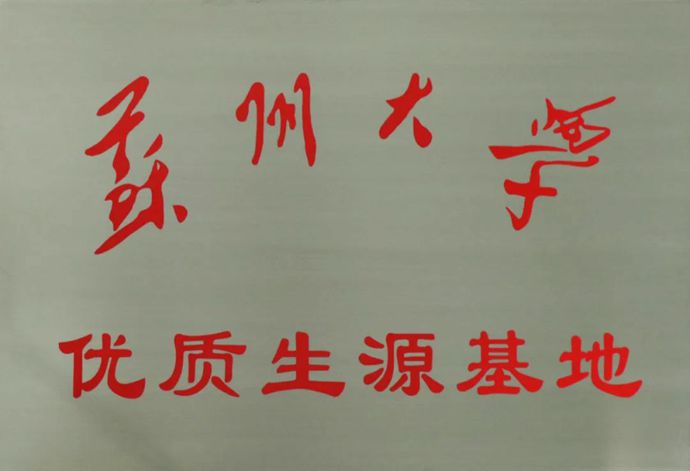 蘇州大学
优质生源基地